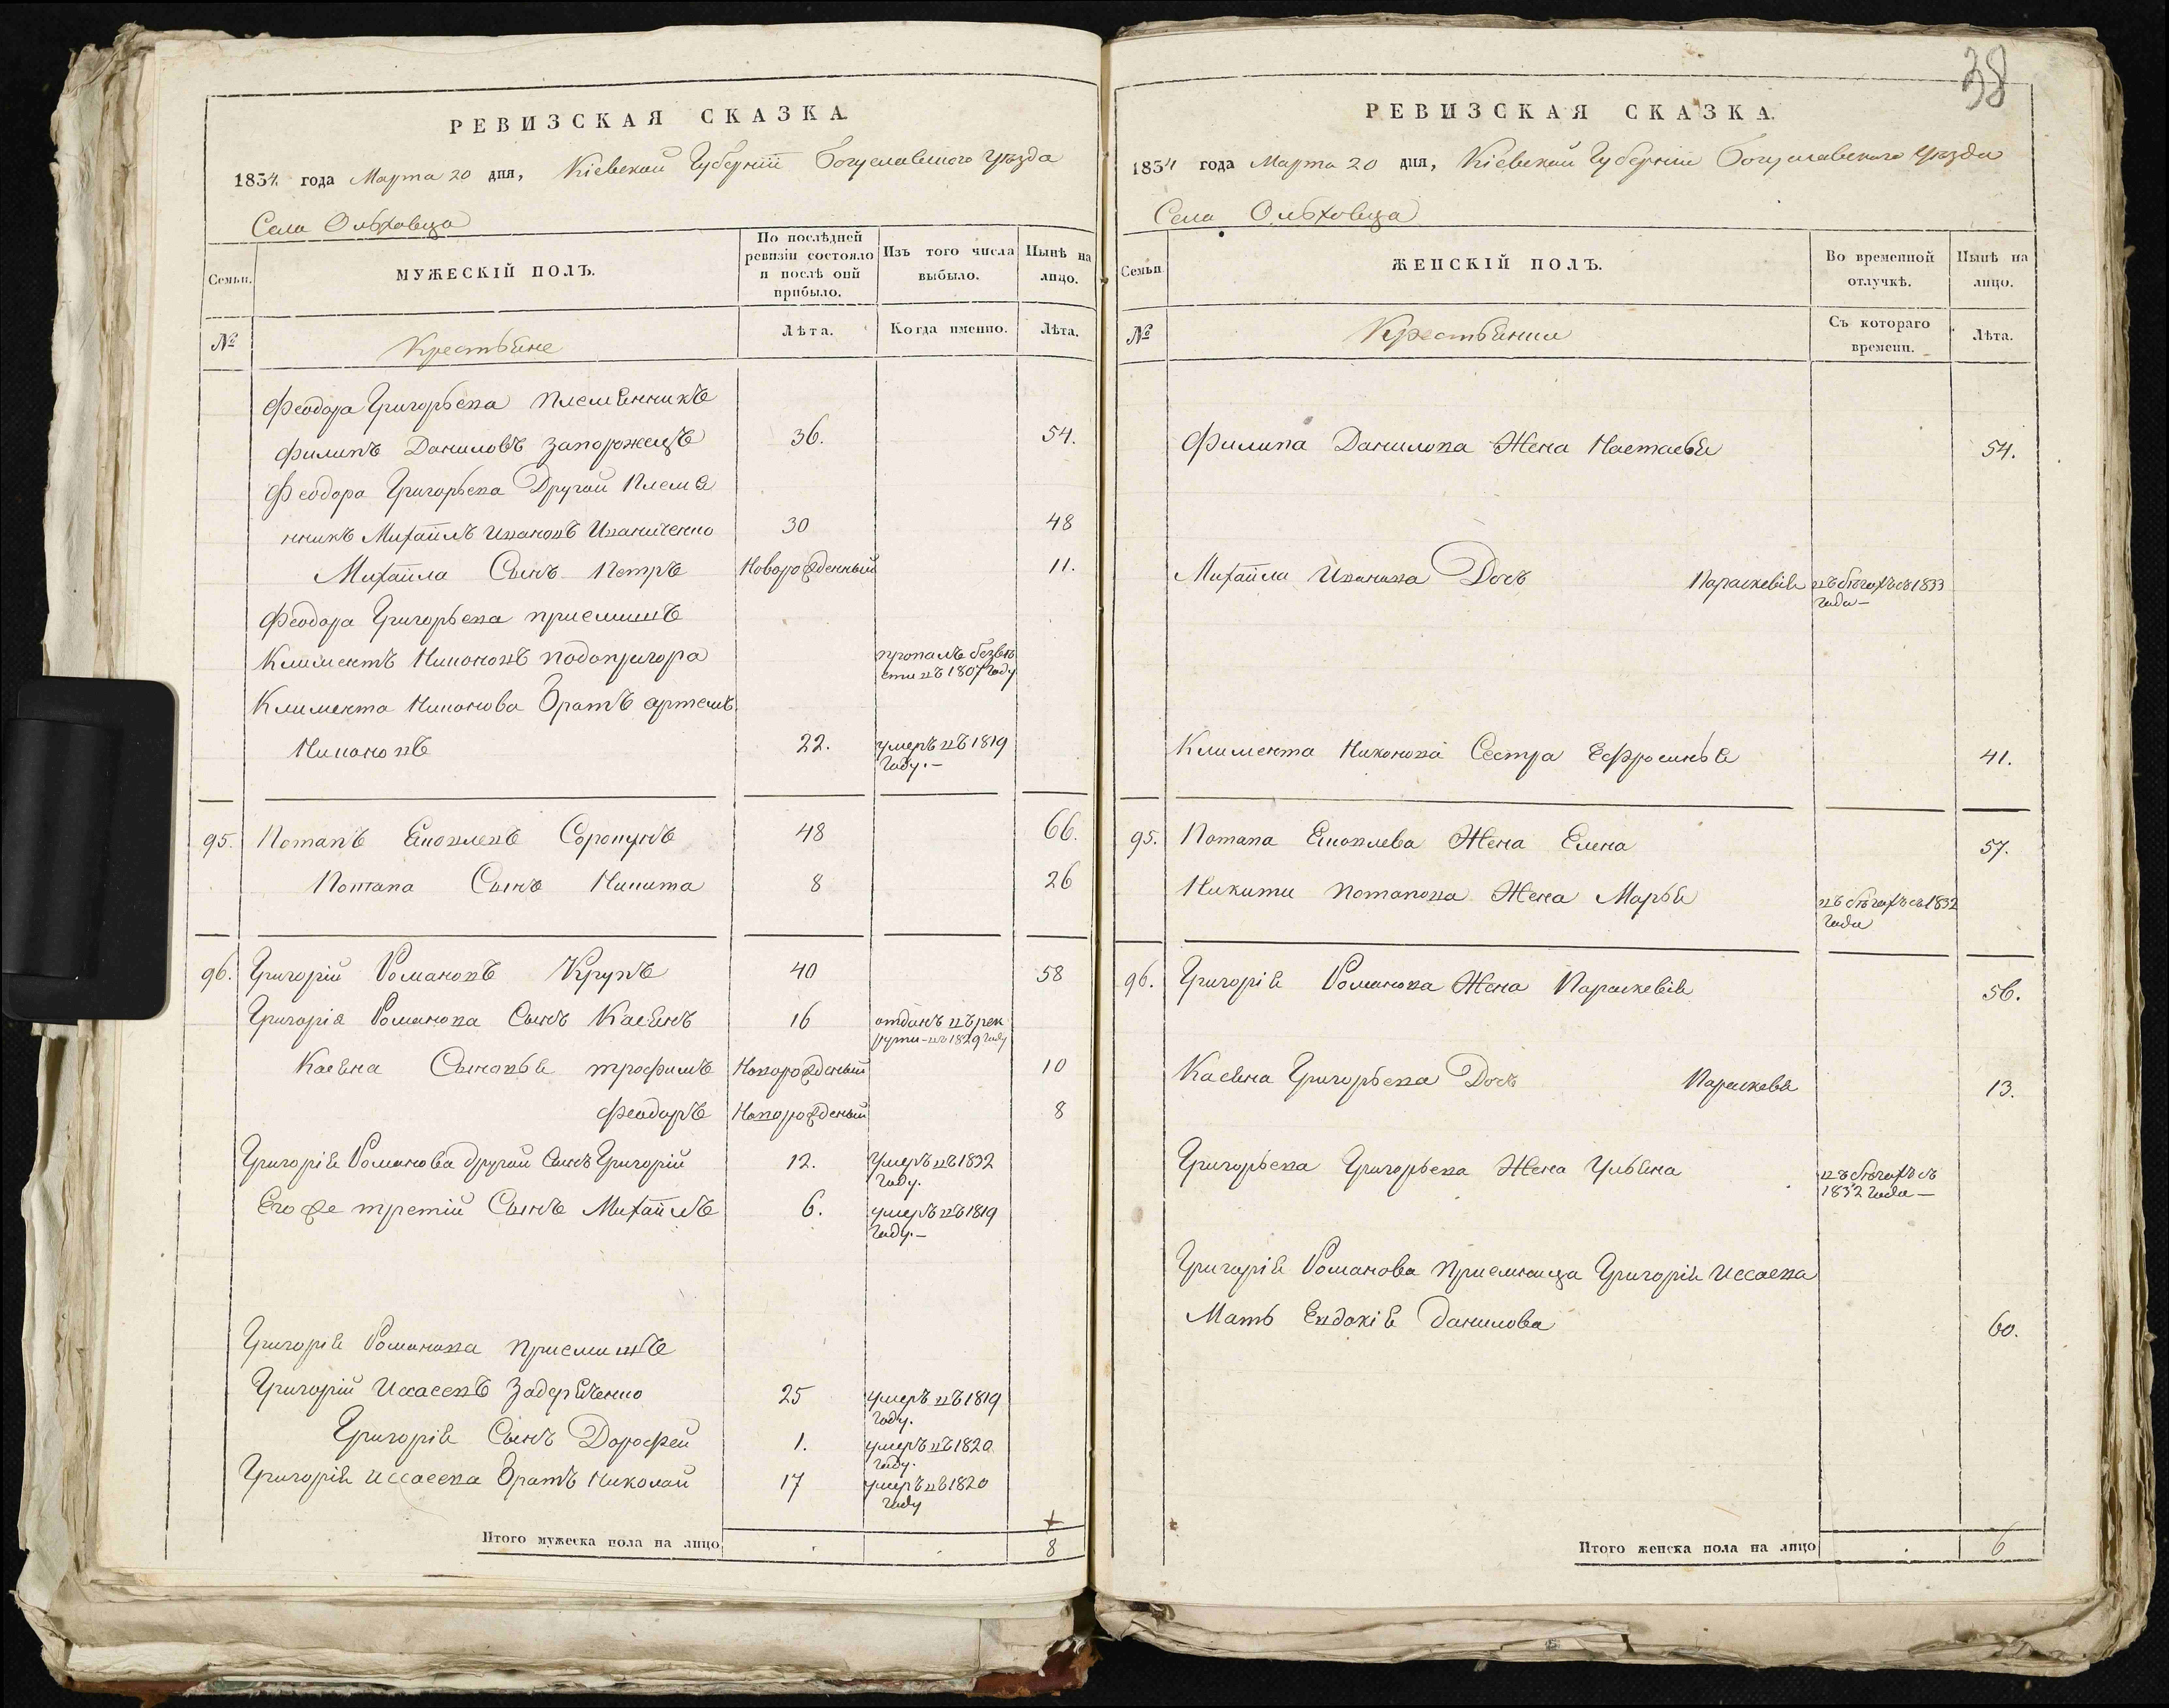 РЕВИЗСКАЯ СКАЗКА.
1834 года Марта 20 дня, Кіевской Губерніи Богуславского уѣзда
Села Ольховца
Семьи.
МУЖЕСКІЙ ПОЛЪ.
По послѣдней ревизіи состояло и послѣ оной прибыло.
Изъ того числа выбыло.
Нынѣ на лицо.
№
Крестьяне
Лѣта.
Когда именно.
Лѣта.
Феодора Григорьева племянникъ
Филипъ Даниловъ Запорожецъ 36. 54.
Феодора Григорьева Другой Племя
нникъ Михайлъ Ивановъ Иваниченко 30 48
Михайла Сынъ Петръ Новорожденный 11.
Феодора Григорьева приемышъ
Климентъ Никоновъ подопригора пропалъ безвѣ
сти въ 1807 году
Климента Никонова Братъ артемъ
Никоновъ 22. умеръ въ 1819
году.—
95. Потапъ Яковлевъ Сорокунъ 48 66.
Потапа Сынъ Никита 8 26
96. Григорій Романовъ Крупъ 40 58
Григорія Романова Сынъ Касянъ 16 отданъ въ рек
руты - въ 1829 году
Касяна Сыновья трофимъ Новорожденый 10
Феодоръ Новорожденый 8
Григорія Романова другой Сынъ Григорій 12. Умеръ въ 1832
году.
Его же третій Сынъ Михайлъ 6. умеръ въ 1819
году.—
Григорія Романова приемышъ
Григорій Иссаевъ Задеряченко 25 умеръ въ 1819
году.
Григорія Сынъ Дорофей 1. умеръ въ 1820
году.
Григорія Иссаева Братъ Николай 17 умеръ въ 1820
году
Итого мужеска пола на лицо 8
38
РЕВИЗСКАЯ СКАЗКА.
1834 года Марта 20 дня, Кіевской Губерніи Богуславского уѣзда
Села Ольховца
Семьи
ЖЕНСКІЙ ПОЛЪ.
Во временной отлучкѣ.
Нынѣ на лицо.
№
Крестьянки
Съ котораго времени.
Лѣта.
Филипа Данилова Жена Настасья 54.
Михайла Иванова Дочь Параскевія въ бѣгахъ съ 1833
года—
Климента Никонова Сестра Ефросинья 41.
95. Потапа Яковлева Жена Елена 57.
Никиты Потапова Жена Марья въ бѣгахъ съ 1832
года
96. Григорія Романова Жена Параскевія 56.
Касяна Григорьева Дочь Параскева 13.
Григорьева Григорьева Жена Ульяна въ бѣгахъ съ
1832 года—
Григорія Романова Приемыша Григорія Иссаева
Мать Евдокія Данилова 60.
Итого женска пола на лицо 6